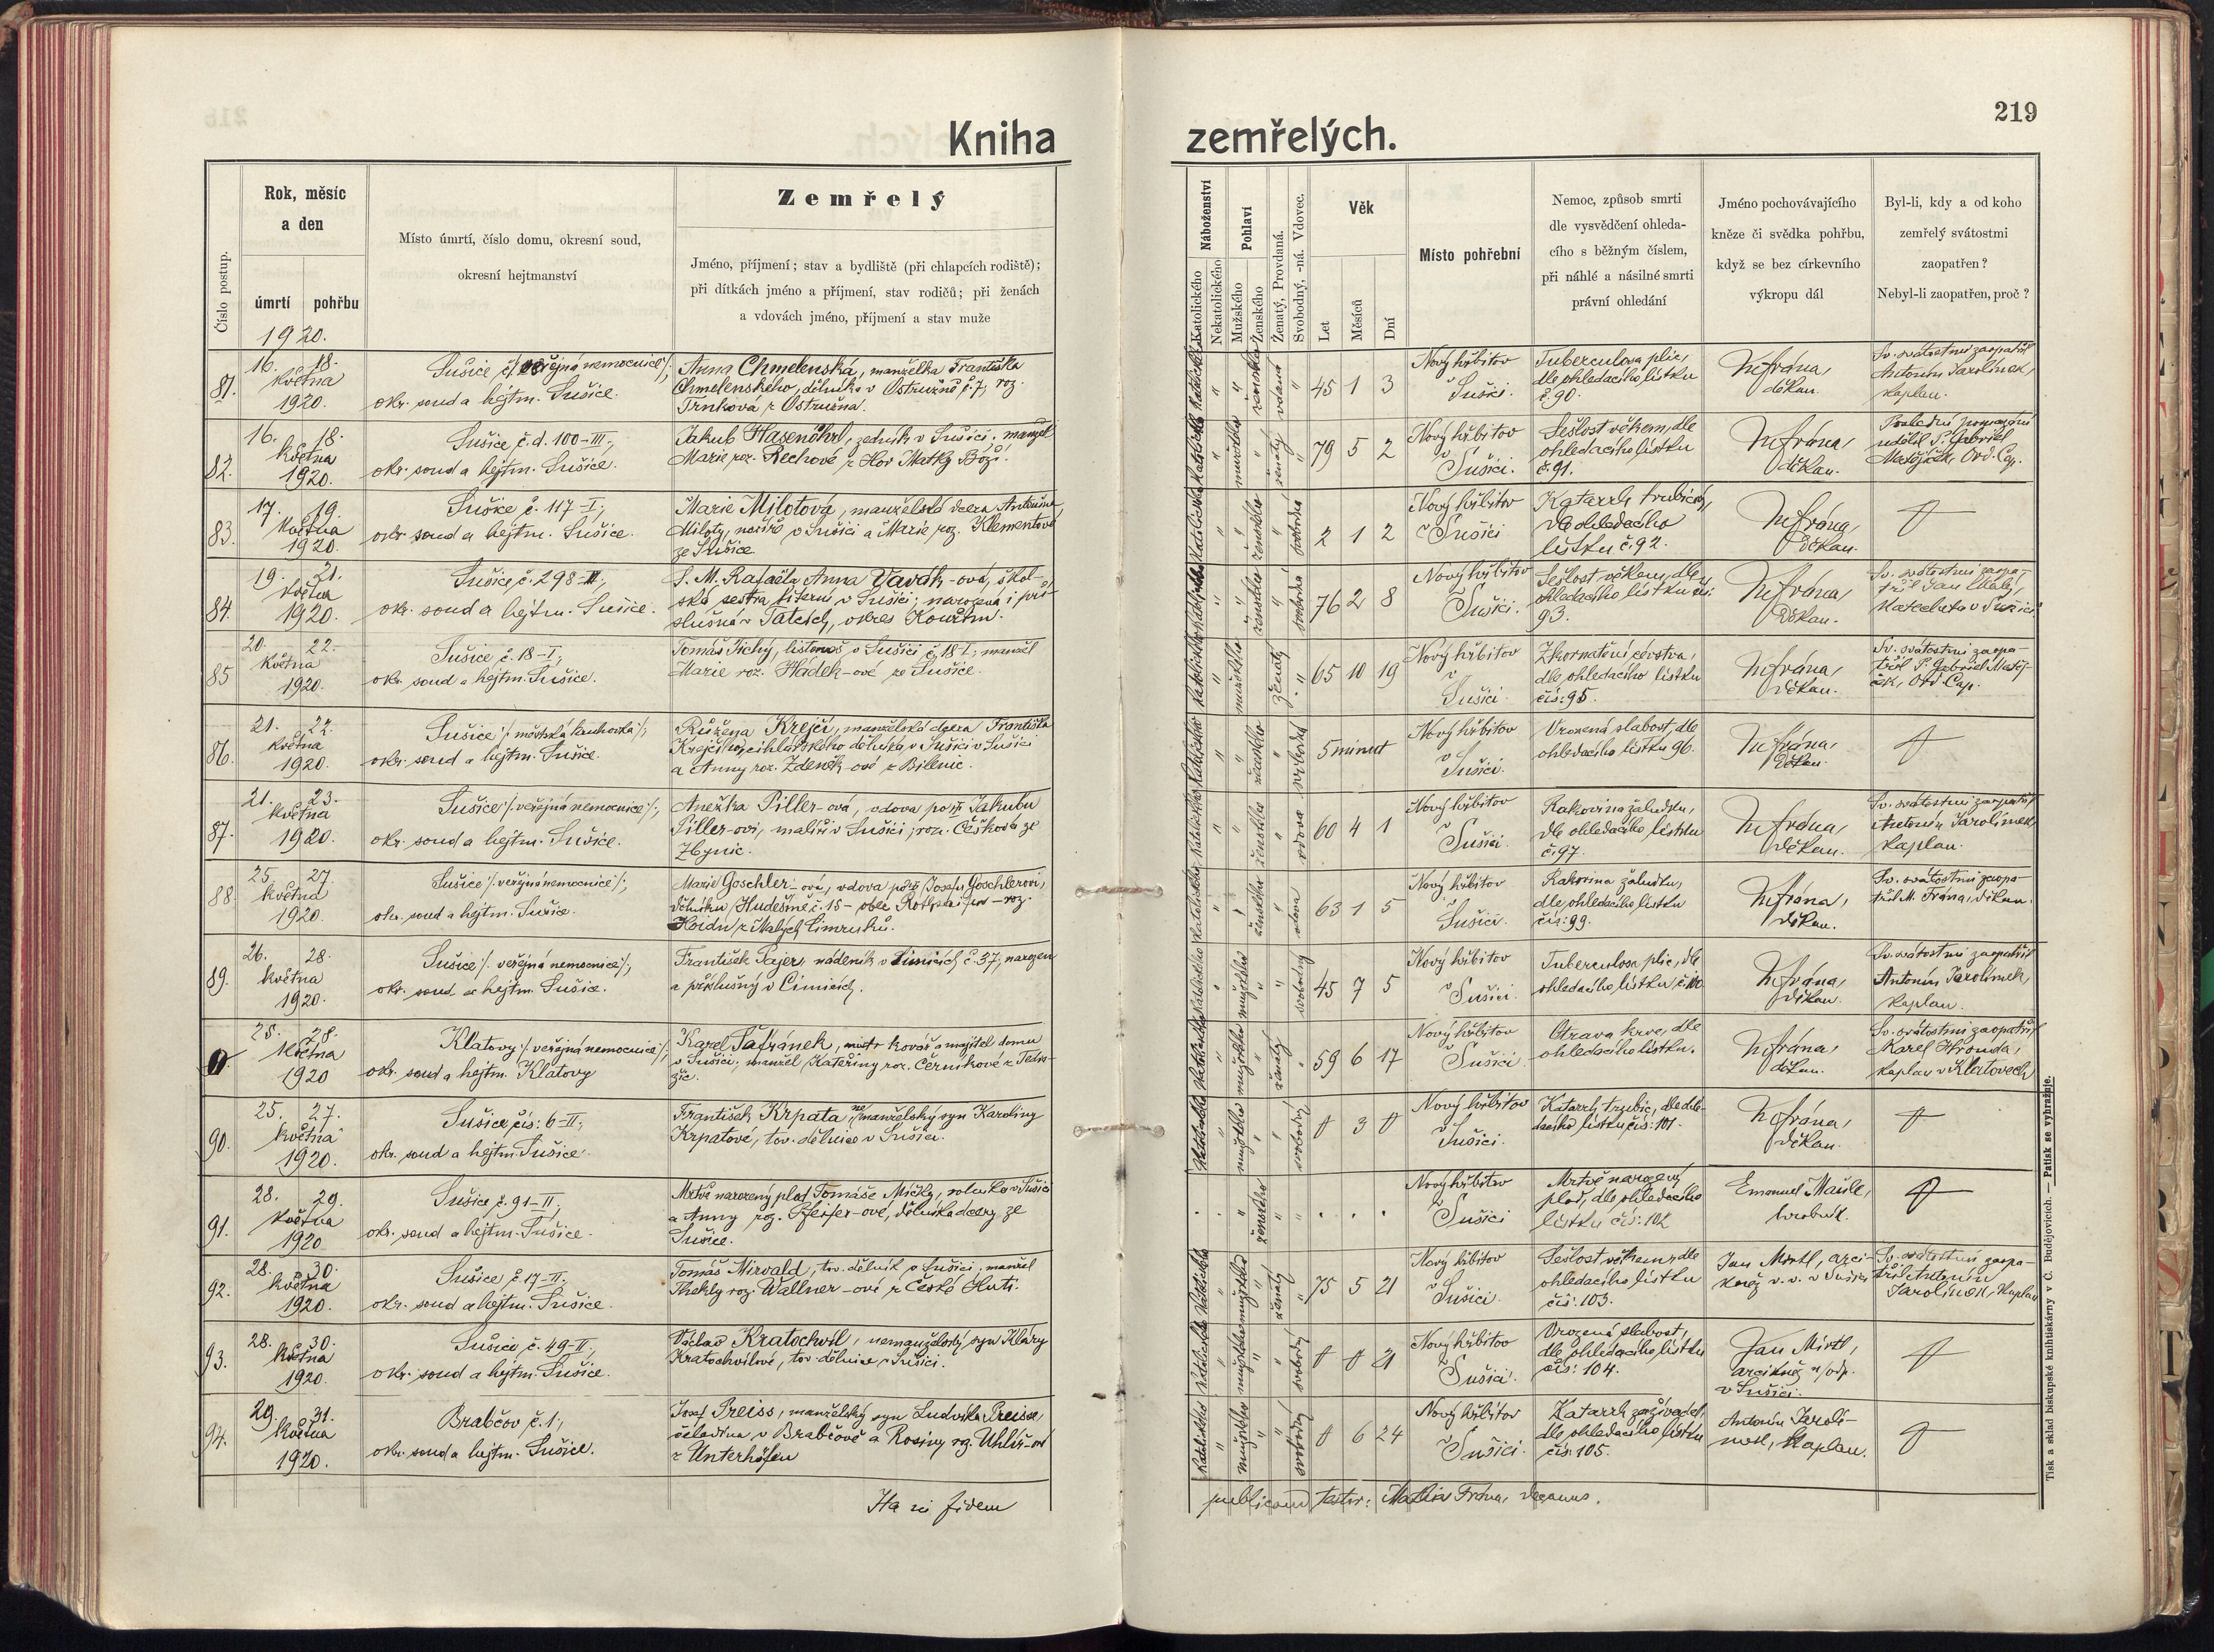 219
Kniha zemřelých.
Číslo postup.
Rok, měsíc
a den
úmrtí pohřbu
1920.
Místo úmrtí, číslo domu, okresní soud,
okresní hejtmanství
Zemřelý
Jméno, příjmení; stav a bydliště (při chlapcích rodiště);
při dítkách jméno a příjmení, stav rodičů; při ženách
a vdovách jméno, příjmení a stav muže
Náboženství
Katolického
Nekatolického
Pohlaví
Mužského
Ženského
Ženatý, Provdaná.
Svobodný, -ná. Vdovec.
Věk
Let
Měsíců
Dní
Místo pohřební
Nemoc, způsob smrti
dle vysvědčení ohleda-
cího s běžným číslem,
při náhlé a násilné smrti
právní ohledání
Jméno pochovávajícího
kněze či svědka pohřbu,
když se bez církevního
výkropu dál
Byl-li, kdy a od koho
zemřelý svátostmi
zaopatřen?
Nebyl-li zaopatřen, proč?
81. 16. 18. května 1920.
Sušice veřejná nemocnice
okr. soud a hejtm. Sušice.
Anna Chmelenská, manželka Františka
Chmelenského, dělníka v Ostružně č. 7, roz.
Trnková z Ostružna.
katolického ženského vdaná 45 1 3
Nový hřbitov
v Sušici.
Tuberculosa plic,
dle ohledacího lístku
č. 90.
M. Frána,
děkan.
Sv. svátostmi zaopatřil
Antonín Jarolímek,
kaplan.
82. 16. 18. května 1920.
Sušice č.d. 100-III;
okr. soud a hejtm. Sušice.
Jakub Hasenöhrl, zedník v Sušici, manžel
Marie roz. Rechové z Hor Matky Boží.
katolického mužského ženatý 79 5 2
Nový hřbitov
v Sušici.
Sešlost věkem, dle
ohledacího lístku
č. 91.
M. Frána,
děkan.
Poslední pomazání
udělil P. Gabriel
Matějček, Ord. Cap.
83. 17. 19. května 1920.
Sušice č. 117-I;
okr. soud a hejtm. Sušice.
Marie Milotová, manželská dcera Antonína
Miloty, v Sušici a Marie roz. Klementové
ze Sušice
katolického ženského svobodná 2 1 2
Nový hřbitov
v Sušici
Katarrh
dle ohledacího
lístku č. 92.
M. Frána,
děkan.
84. 19. 21. května 1920.
Sušice, č. 298-II;
okr. soud a hejtm. Sušice.
S. M. Rafaela Anna Vavák-ová, škol-
ská sestra v Sušici; narozená i pří-
slušná v okres Kouřim.
katolického ženského svobodná 76 2 8
Nový hřbitov
v Sušici.
Sešlost věkem, dle
ohledacího lístku čís.
93.
M. Frána,
děkan.
Sv. svátostmi zaopa-
třil Jan
katecheta v Sušici.
85 20. 22. května 1920.
Sušice č. 18-I;
okr. soud a hejtm. Sušice.
Tomáš Tichý, listonoš v Sušici č. 18-I; manžel
Marie roz. Hadek-ové ze Sušice.
katolického mužského ženatý 65 10 19
Nový hřbitov
v
Sušici
Zkornatění cévstva,
dle ohledacího lístku
čís: 95.
M. Frána,
děkan.
Sv. svátostmi zaopa-
třil P. Gabriel Matěj-
ček, Ord. Cap.
86. 21. 22. května 1920.
Sušice
okr. soud a hejtm. Sušice.
Růžena Krejčí, manželská dcera Františka
Krejčího, cihlářského dělníka v Sušici
a Anny roz. Zdeněk-ové z Bílenic.
katolického ženského svobodná 5 minut
Nový hřbitov
v
Sušici.
Vrozená slabost, dle
ohledacího lístku 96.
M. Frána,
děkan.
87. 21. 23. května 1920.
Sušice /: veřejná nemocnice :/,
okr. soud a hejtm. Sušice.
Anežka Piller-ová, vdova po † Jakubu
Piller-ovi, malíři v Sušici; roz. Češková ze
Zbynic.
katolického ženského vdova 60 4 1
Nový hřbitov
v
Sušici
Rakovina žaludku,
dle ohledacího lístku
č. 97.
M. Frána,
děkan.
Sv. svátostmi zaopatřil
Antonín Jarolímek,
kaplan.
88. 25. 27. května 1920.
Sušice /: veřejná nemocnice :/,
okr. soud a hejtm. Sušice.
Marie Goschler-ová, vdova po † Josefu Goschlerovi,
dělníku Hudešíně č. 15 - obec roz.
z Malých
katolického ženského vdova 63 1 5
Nový hřbitov
v
Sušici.
Rakovina žaludku,
dle ohledacího lístku
čís: 99.
M. Frána,
děkan.
Sv. svátostmi zaopa-
třil M. Frána, děkan.
89. 26. 28. května 1920.
Sušice /: veřejná nemocnice :/,
okr. soud a hejtm. Sušice.
František Pajer, nádeník v Čimicích č. 37, narozen
a příslušný v Čimicích.
katolického mužského svobodný 45 7 5
Nový hřbitov
v Sušici.
Tuberculosa plic, dle
ohledacího lístku č. 100.
M. Frána,
děkan.
Sv. svátostmi zaopatřil
Antonín Jarolímek,
kaplan.
25. 28. května 1920
Klatovy /: veřejná nemocnice :/,
okr. soud a hejtm. Klatovy
Karel Šafránek, mistr kovář a majitel domu
v Sušici, manžel Kateřiny roz. Černíkové z Tedra-
žic.
katolického mužského ženatý 59 6 17
Nový hřbitov
v Sušici
Otrava krve, dle
ohledacího lístku.
M. Frána,
děkan.
Sv. svátostmi zaopatřil
Karel Hrouda,
kaplan v Klatovech
90. 25. 27. května 1920.
Sušice čís: 6-II;
okr. soud a hejtm. Sušice.
František Krpata nemanželský syn Karoliny
Krpatové, tov. dělnice v Sušici.
katolického mužského svobodný 0 3 0
Nový hřbitov
v Sušici.
Katarrh trubic, dle ohle-
dacího lístku čís: 101.
M. Frána,
děkan.
91. 28. 29. května 1920
Sušice, č. 91-II,
okr. soud a hejtm. Sušice.
Mrtvě narozený plod Tomáše Mičky, rolníka v Sušici
a Anny roz. Pfeifer-ové, dělníka dcery ze
Sušice.
ženského
Nový hřbitov
v Sušici
Mrtvě narozený
plod, dle ohledacího
lístku čís: 102
Emanuel Maule,
hrobník.
92. 28. 30. května 1920.
Sušice č. 17-II;
okr. soud a hejtm. Sušice.
Tomáš Nirvald, tov. dělník v Sušici, manžel
Thekly roz. Wallner-ové z České Huti.
katolického mužského ženatý 75 5 21
Nový hřbitov
v Sušici.
Sešlost věkem, dle
ohledacího lístku
čís. 103.
Jan Mirtl, arci-
kněz v. v. v Sušici
Sv. svátostmi zaopa-
třil Antonín
Jarolímek, kaplan
93. 28. 30. května 1920.
Sušici č. 49-II;
okr. soud a hejtm. Sušice.
Václav Kratochvíl, nemanželský syn Kláry
Kratochvílové, tov. dělnice v Sušici.
katolického mužského svobodný 0 0 21
Nový hřbitov
v
Sušici.
Vrozená slabost,
dle ohledacího lístku
čís: 104.
Jan Mirtl,
arcikněz
v Sušici.
94. 29. 31. května 1920.
Brabčov č. 1;
okr. soud a hejtm. Sušice.
Josef Preiss, manželský syn Ludvíka Preisse,
čeledína v Brabčově a Rosiny roz. Uhlíř-ové
z Unterhöfen
katolického mužského svobodný 0 6 24
Nový hřbitov
v Sušici.
Katarrh zažívadel,
dle ohledacího lístku
čís: 105.
Antonín Jarolí-
mek, kaplan.
Ita in fidem publicam testor: Mathias Frána, decanus.
Tisk a sklad biskupské knihtiskárny v Č. Budějovicích. — Patisk se vyhražuje.